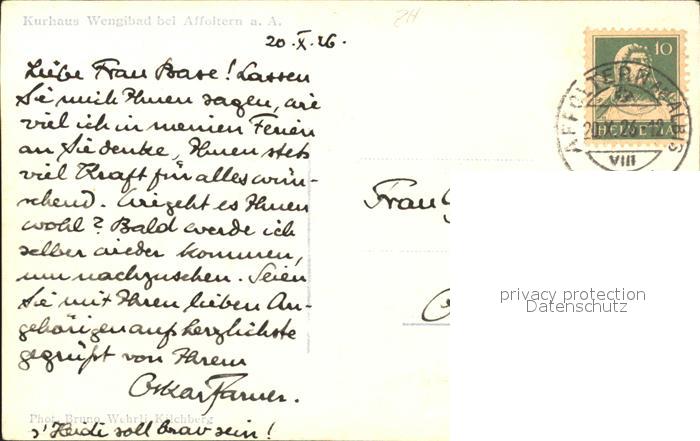 Kurhaus Wengibad bei Affoltern a. A.
ZH
20.X.26.
Liebe Frau Base! Lassen
Sie mich Ihnen sagen, wie
viel ich in meinen Ferien
an Sie denke, Ihnen stets
viel Kraft für alles wün-
schend. Wie geht es Ihnen
wohl? Bald werde ich
selber wieder kommen,
um nachzusehen. Seien
Sie mit Ihren lieben An-
gehörigen aufs herzlichste
gegrüßt von Ihrem
Oskar Farner.
Phot. Bruno Wehrli Kilchberg
s'Heidi soll brav sein!
10
HELVETIA
AFFOLTERN a. ALBIS
20.X.26
VIII
Frau
privacy protection
Datenschutz